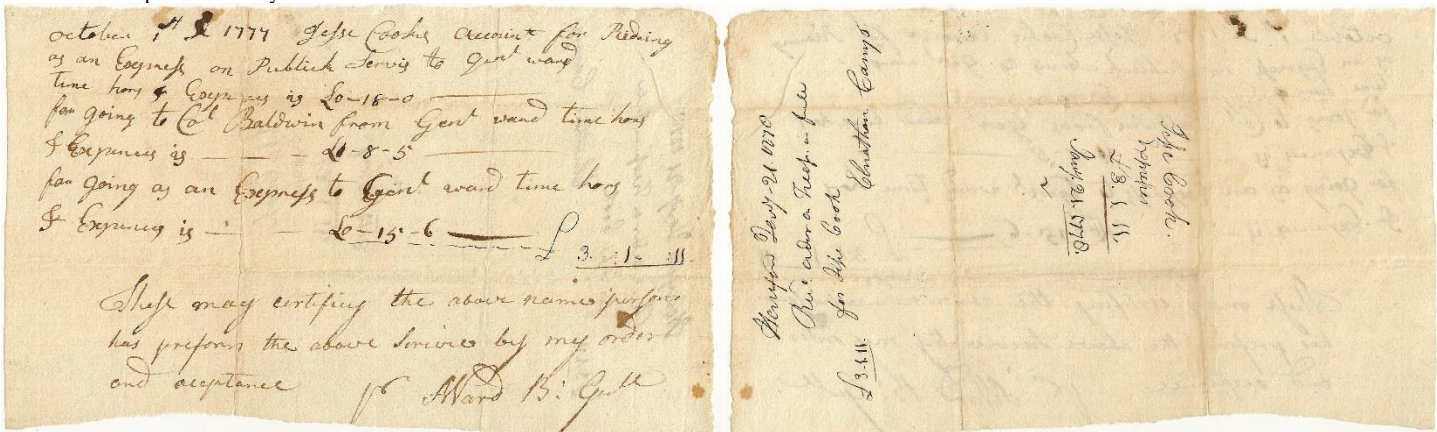 october 1st 1777 Jesse Cooks account for Rideing
as an Express on Publick Servis to Genl ward
time hors & Expences is £0-18-0
for going to Col Baldwin from Genl ward time hors
& Expences is £1-8-5
for going as an Express to Genl ward time hors
& Expences is £0-15-6 £3:1-:11
These may certifiy the above name person
has preform the above service by my order
and acceptance pr AWard B: Genll
21 1778
Recd order on Treasr in full
for Jesse Cook Elnathan Camp
£3-1-11
Jesse Cook.
Expences
£3.1.11.
Jany 21. 1778.